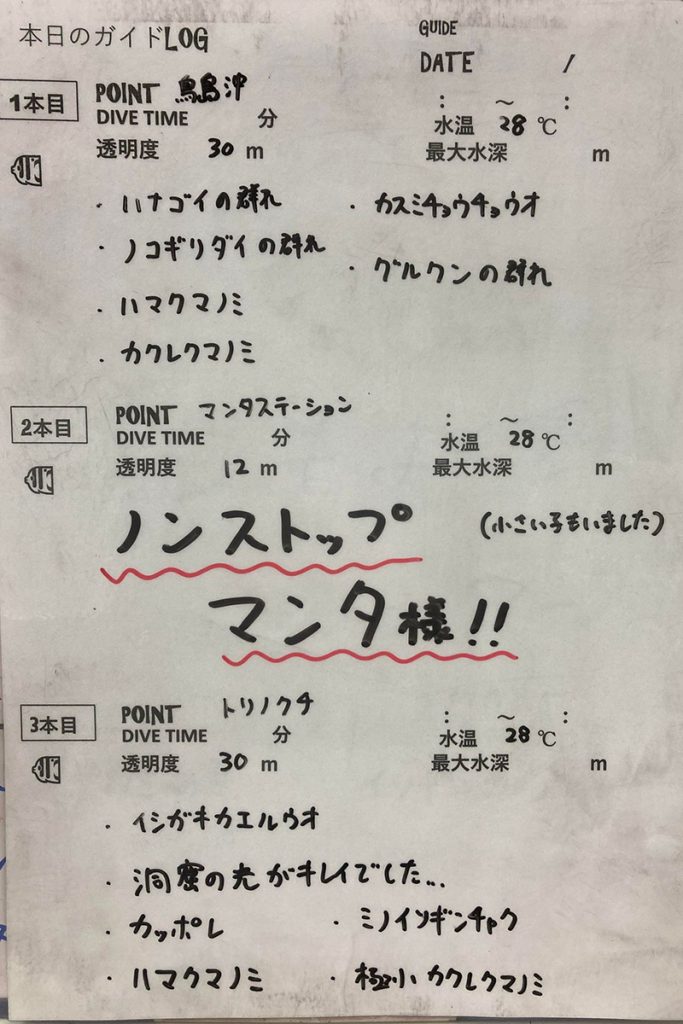 本日のガイドLOG
GUIDE
DATE /
1本目
POINT 鳥島沖
DIVE TIME 分 : ～ :
水温 28 ℃
透明度 30 m 最大水深 m
・ハナゴイの群れ ・カスミチョウチョウオ
・ノコギリダイの群れ ・グルクンの群れ
・ハマクマノミ
・カクレクマノミ
2本目
POINT マンタステーション
DIVE TIME 分 : ～ :
水温 28 ℃
透明度 12 m 最大水深 m
ノンストップ (小さい子もいました)
マンタ様!!
3本目
POINT トリノクチ
DIVE TIME 分 : ～ :
水温 28 ℃
透明度 30 m 最大水深 m
・イシガキカエルウオ
・洞窟の光がキレイでした...
・カッポレ ・ミノイソギンチャク
・ハマクマノミ ・極小カクレクマノミ